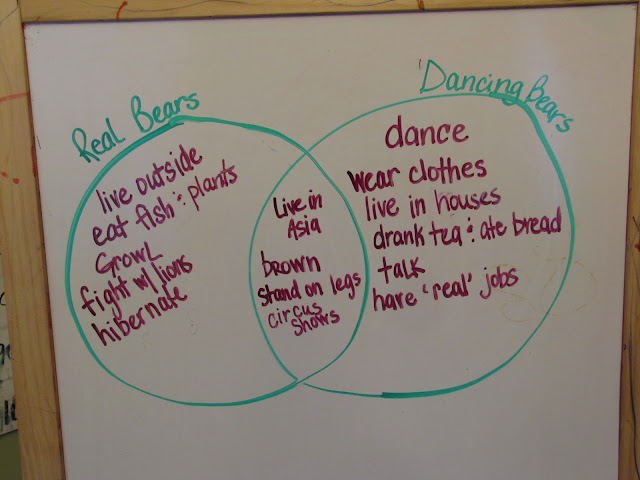 Real Bears
live outside
eat fish & plants
Growl
fight w/ lions
hibernate
Live in
Asia
brown
stand on legs
circus
shows
Dancing Bears
dance
wear clothes
live in houses
drank tea & ate bread
talk
have 'real' jobs